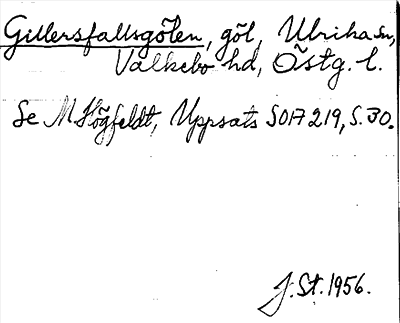 Gillersfallsgölen, göl, Ulrika sn,
Valkebo hd, Östg. l.
Se M Högfeldt, Uppsats SOA 219, S. 30.
J. St. 1956.